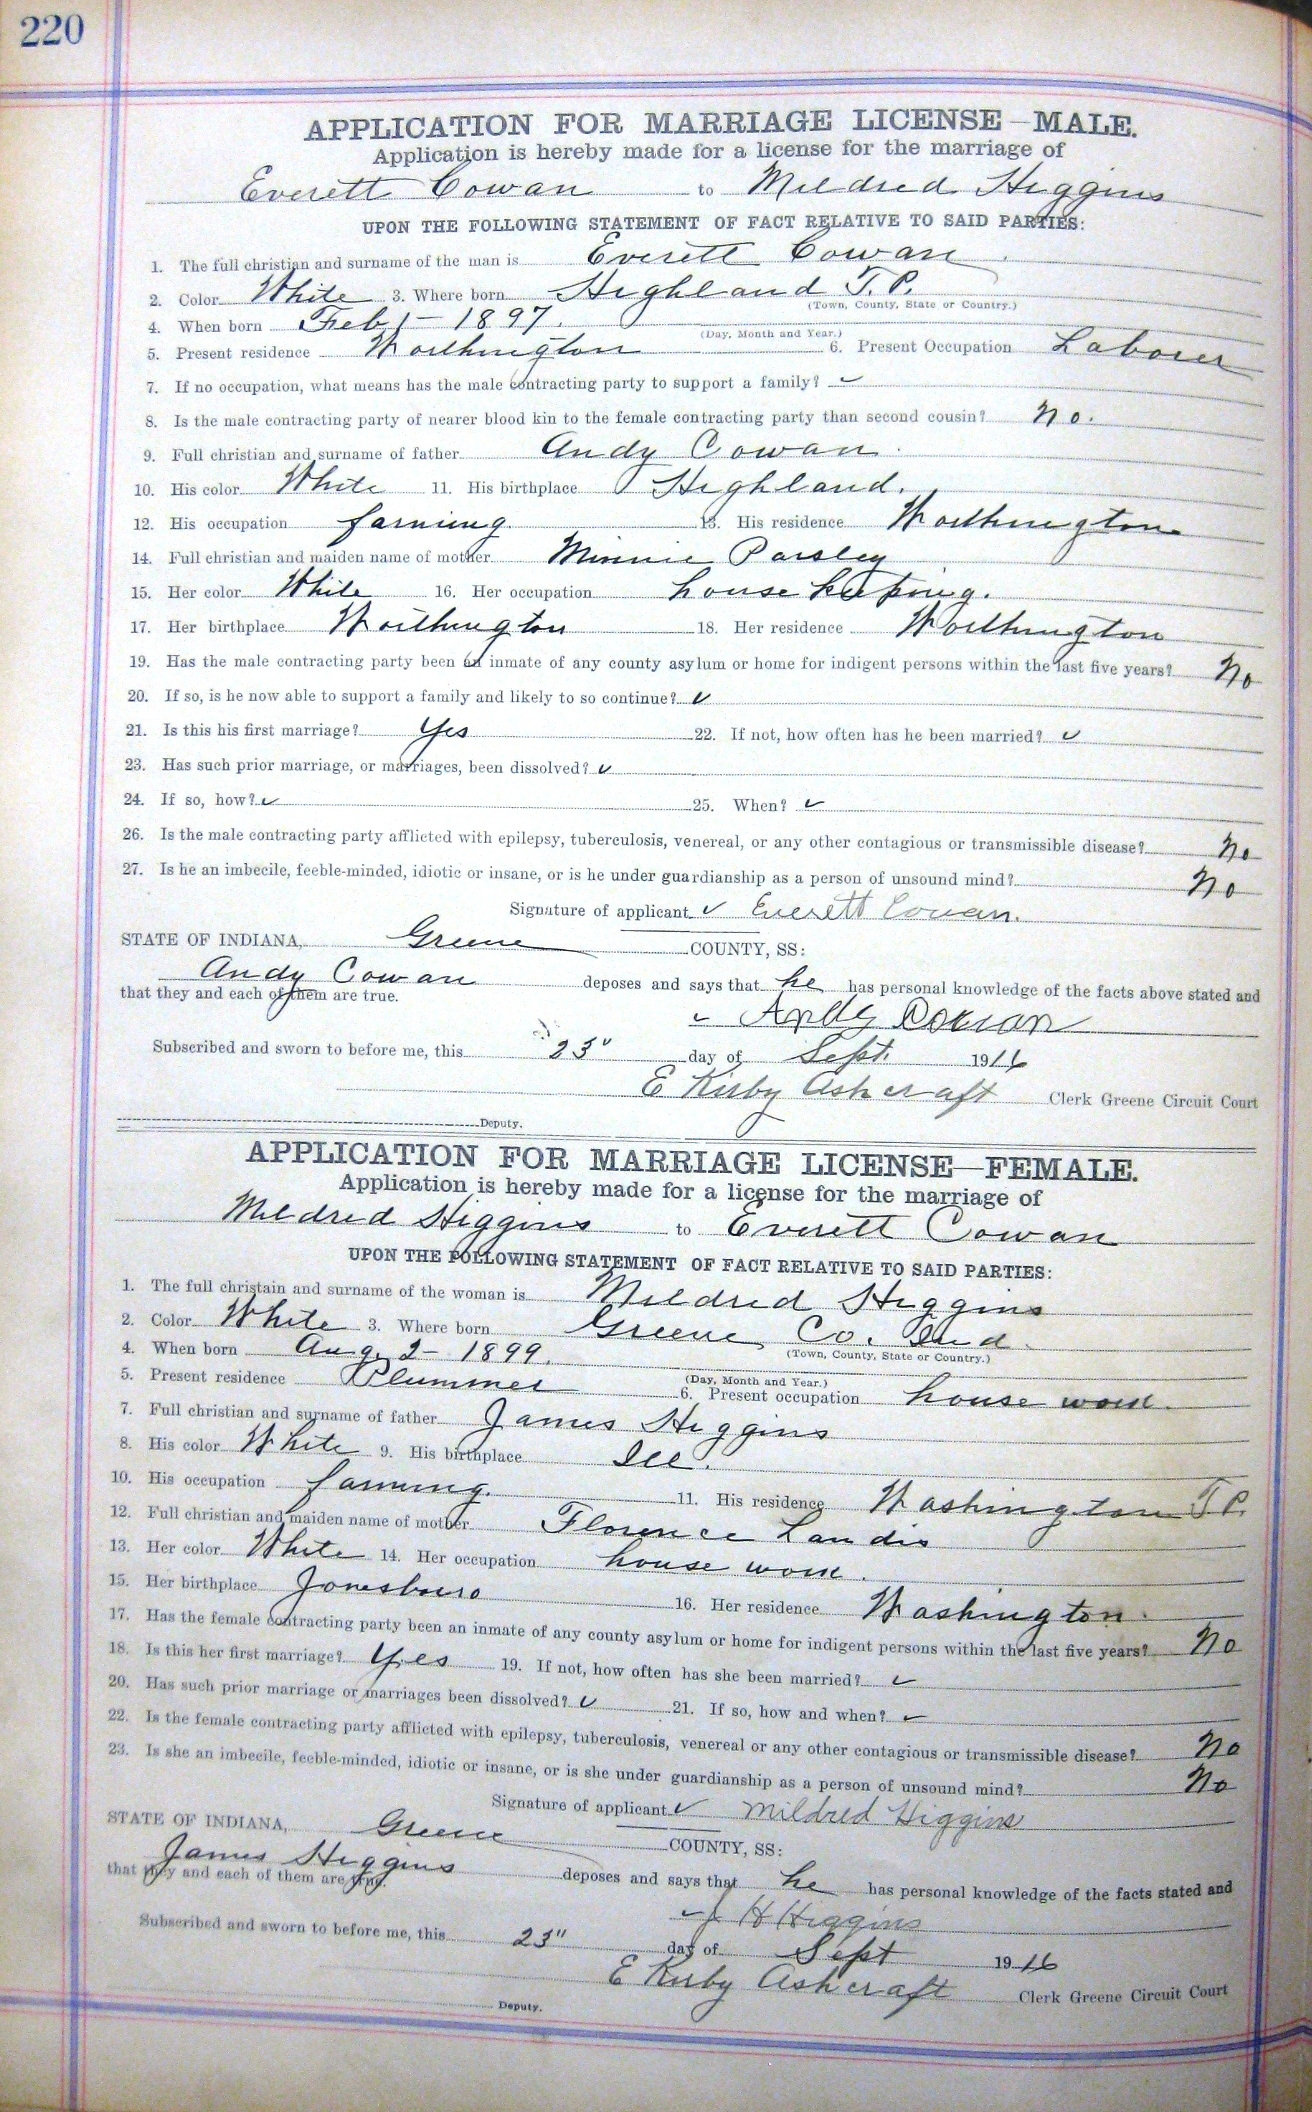 220
APPLICATION FOR MARRIAGE LICENSE—MALE.
Application is hereby made for a license for the marriage of
Everett Cowan to Mildred Higgins
UPON THE FOLLOWING STATEMENT OF FACT RELATIVE TO SAID PARTIES:
1. The full christian and surname of the man is Everett Cowan
2. Color White 3. Where born Highland T.P.
(Town, County, State or Country.)
4. When born Feb 1 - 1897.
(Day, Month and Year.)
5. Present residence Worthington 6. Present Occupation Laborer
7. If no occupation, what means has the male contracting party to support a family? ✓
8. Is the male contracting party of nearer blood kin to the female contracting party than second cousin? No.
9. Full christian and surname of father Andy Cowan.
10. His color White 11. His birthplace Highland.
12. His occupation farming 13. His residence Worthington
14. Full christian and maiden name of mother Minnie Parsley
15. Her color White 16. Her occupation house keeping.
17. Her birthplace Worthington 18. Her residence Worthington
19. Has the male contracting party been an inmate of any county asylum or home for indigent persons within the last five years? No
20. If so, is he now able to support a family and likely to so continue? ✓
21. Is this his first marriage? Yes 22. If not, how often has he been married? ✓
23. Has such prior marriage, or marriages, been dissolved? ✓
24. If so, how? ✓ 25. When? ✓
26. Is the male contracting party afflicted with epilepsy, tuberculosis, venereal, or any other contagious or transmissible disease? No
27. Is he an imbecile, feeble-minded, idiotic or insane, or is he under guardianship as a person of unsound mind? No
Signature of applicant ✓ Everett Cowan.
STATE OF INDIANA, Greene COUNTY, SS:
Andy Cowan deposes and says that he has personal knowledge of the facts above stated and
that they and each of them are true.
✓ Andy Cowan
Subscribed and sworn to before me, this 23" day of Sept. 1916
E Kirby Ashcraft Clerk Greene Circuit Court
Deputy.
APPLICATION FOR MARRIAGE LICENSE—FEMALE.
Application is hereby made for a license for the marriage of
Mildred Higgins to Everett Cowan
UPON THE FOLLOWING STATEMENT OF FACT RELATIVE TO SAID PARTIES:
1. The full christain and surname of the woman is Mildred Higgins
2. Color White 3. Where born Greene Co. Ind.
(Town, County, State or Country.)
4. When born Aug. 2 - 1899.
(Day, Month and Year.)
5. Present residence Plummer 6. Present occupation house work.
7. Full christian and surname of father James Higgins
8. His color White 9. His birthplace Ill.
10. His occupation farming. 11. His residence Washington T P.
12. Full christian and maiden name of mother Florence Landis
13. Her color White 14. Her occupation house work.
15. Her birthplace Jonesboro 16. Her residence Washington.
17. Has the female contracting party been an inmate of any county asylum or home for indigent persons within the last five years? No
18. Is this her first marriage? Yes 19. If not, how often has she been married? ✓
20. Has such prior marriage or marriages been dissolved? ✓ 21. If so, how and when? ✓
22. Is the female contracting party afflicted with epilepsy, tuberculosis, venereal or any other contagious or transmissible disease? No
23. Is she an imbecile, feeble-minded, idiotic or insane, or is she under guardianship as a person of unsound mind? No
Signature of applicant ✓ Mildred Higgins
STATE OF INDIANA, Greene COUNTY, SS:
James Higgins deposes and says that he has personal knowledge of the facts stated and
that they and each of them are true.
✓ J H Higgins
Subscribed and sworn to before me, this 23" day of Sept 1916
E Kirby Ashcraft Clerk Greene Circuit Court
Deputy.